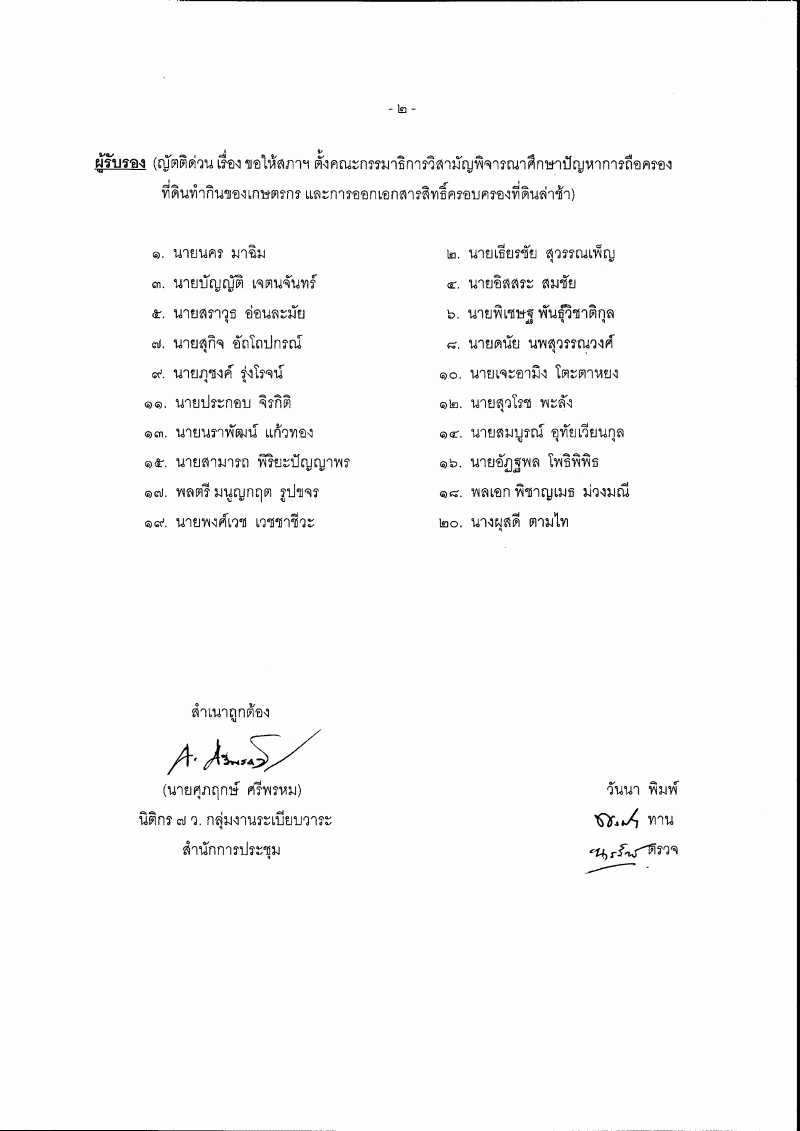 - ๒ -
ผู้รับรอง (ญัตติด่วน เรื่อง ขอให้สภาฯ ตั้งคณะกรรมาธิการวิสามัญพิจารณาศึกษาปัญหาการถือครอง
ที่ดินทำกินของเกษตรกร และการออกเอกสารสิทธิ์ครอบครองที่ดินล่าช้า)
๑. นายนคร มาฉิม ๒. นายเธียรชัย สุวรรณเพ็ญ
๓. นายบัญญัติ เจตนจันทร์ ๔. นายอิสสระ สมชัย
๕. นายสราวุธ อ่อนละมัย ๖. นายพิเชษฐ พันธุ์วิชาติกุล
๗. นายสุกิจ อัถโถปกรณ์ ๘. นายดนัย นพสุวรรณวงศ์
๙. นายภุชงค์ รุ่งโรจน์ ๑๐. นายเจะอามิง โตะตาหยง
๑๑. นายประกอบ จิรกิติ ๑๒. นายสุวโรช พะลัง
๑๓. นายนราพัฒน์ แก้วทอง ๑๔. นายสมบูรณ์ อุทัยเวียนกุล
๑๕. นายสามารถ พิริยะปัญญาพร ๑๖. นายอัฏฐพล โพธิพิพิธ
๑๗. พลตรี มนูญกฤต รูปขจร ๑๘. พลเอก พิชาญเมธ ม่วงมณี
๑๙. นายพงศ์เวช เวชชาชีวะ ๒๐. นางผุสดี ตามไท
สำเนาถูกต้อง
(นายศุภฤกษ์ ศรีพรหม) วันนา พิมพ์
นิติกร ๗ ว. กลุ่มงานระเบียบวาระ ทาน
สำนักการประชุม ตรวจ